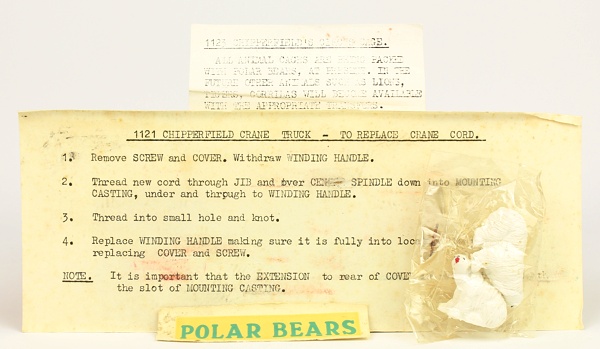 1121 CHIPPERFIELD'S CAGE.
ALL ANIMAL CAGES ARE BEING PACKED
WITH POLAR BEARS, AT PRESENT. IN THE
FUTURE OTHER ANIMALS SUCH AS LIONS,
TIGERS, GORILLAS WILL BECOME AVAILABLE
WITH THE APPROPRIATE TRANSFERS.
1121 CHIPPERFIELD CRANE TRUCK - TO REPLACE CRANE CORD.
1. Remove SCREW and COVER. Withdraw WINDING HANDLE.
2. Thread new cord through JIB and over SPINDLE down into MOUNTING
CASTING, under and through to WINDING HANDLE.
3. Thread into small hole and knot.
4. Replace WINDING HANDLE making sure it is fully into
replacing COVER and SCREW.
NOTE. It is important that the EXTENSION to rear of
the slot of MOUNTING CASTING.
POLAR BEARS